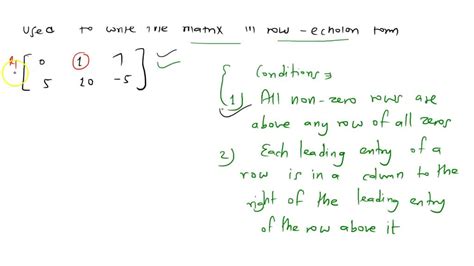 used to write the matrix in row-echolon form
0 1 7
5 20 -5
Conditions
1) All non-zero rows are
above any row of all zeros
2) Each leading entry of a
row is in a column to the
right of the leading entry
of the row above it